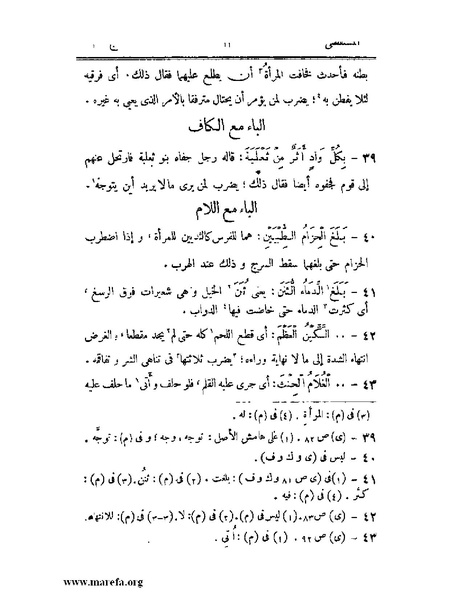 المستقصى ١١
بطنه فأحدث فخافت المرأة٣ أن يطلع عليهما فقال ذلك. أى فرقيه
لئلا يفطن به٤؛ يضرب لمن يؤمر أن يحتال مترفقا بالأمر الذى يعيى به غيره.
الباء مع الكاف
٣٩ - بِكُلِّ وَادٍ أَثَرٌ مِنْ ثَعْلَبَةَ: قاله رجل جفاه بنو ثعلبة فارتحل عنهم
إلى قوم فجفوه أيضا فقال ذلك؛ يضرب لمن يرى مالا يريد أين يتوجه١.
الباء مع اللام
٤٠ - بَلَغَ الْحِزَامُ الطُّبْيَيْنِ: هما للفرس كالثديين للمرأة، و إذا اضطرب
الحزام حتى بلغهما سقط السرج و ذلك عند الهرب.
٤١ - بَلَغَ١ الدِّمَاءُ الثُّنَنَ: يعنى ثُنَنَ٢ الخيل وهى شعيرات فوق الرسغ،
أى كثرت٣ الدماء حتى خاضت فيها٤ الدواب.
٤٢ - .. السِّكِّينُ الْعَظْمَ: أى قطع اللحم١ كله حتى لم٢ يجد مقطعا، والغرض
انتهاء الشدة إلى ما لا نهاية وراءه؛ ٣يضرب ثلاثتها٣ فى تناهى الشر و تفاقه.
٤٣ - .. الْغُلَامُ الْحِنْثَ: أى جرى عليه القلم، فلو حلف وأتى١ ما حلف عليه
(٣) فى (م): المرأة. (٤) فى (م): له.
٣٩ - (ى) ص ٨٢. (١) على هامش الأصل: توجه، وجه؛ و فى (م): توجَّه.
٤٠ - ليس فى (ى و ك و ف).
٤١ - (١) فى (ى ص ٨١ و ك و ف): بلغت. (٢) فى (م): ثنن. (٣) فى (م):
كثر. (٤) فى (م): فيه.
٤٢ - (ى) ص ٨٣. (١) ليس فى (م). (٢) فى (م): لا. (٣-٣) فى (م): للانتهاء.
٤٣ - (ى) ص ٩٢. (١) فى (م): أُتِى.
www.marefa.org